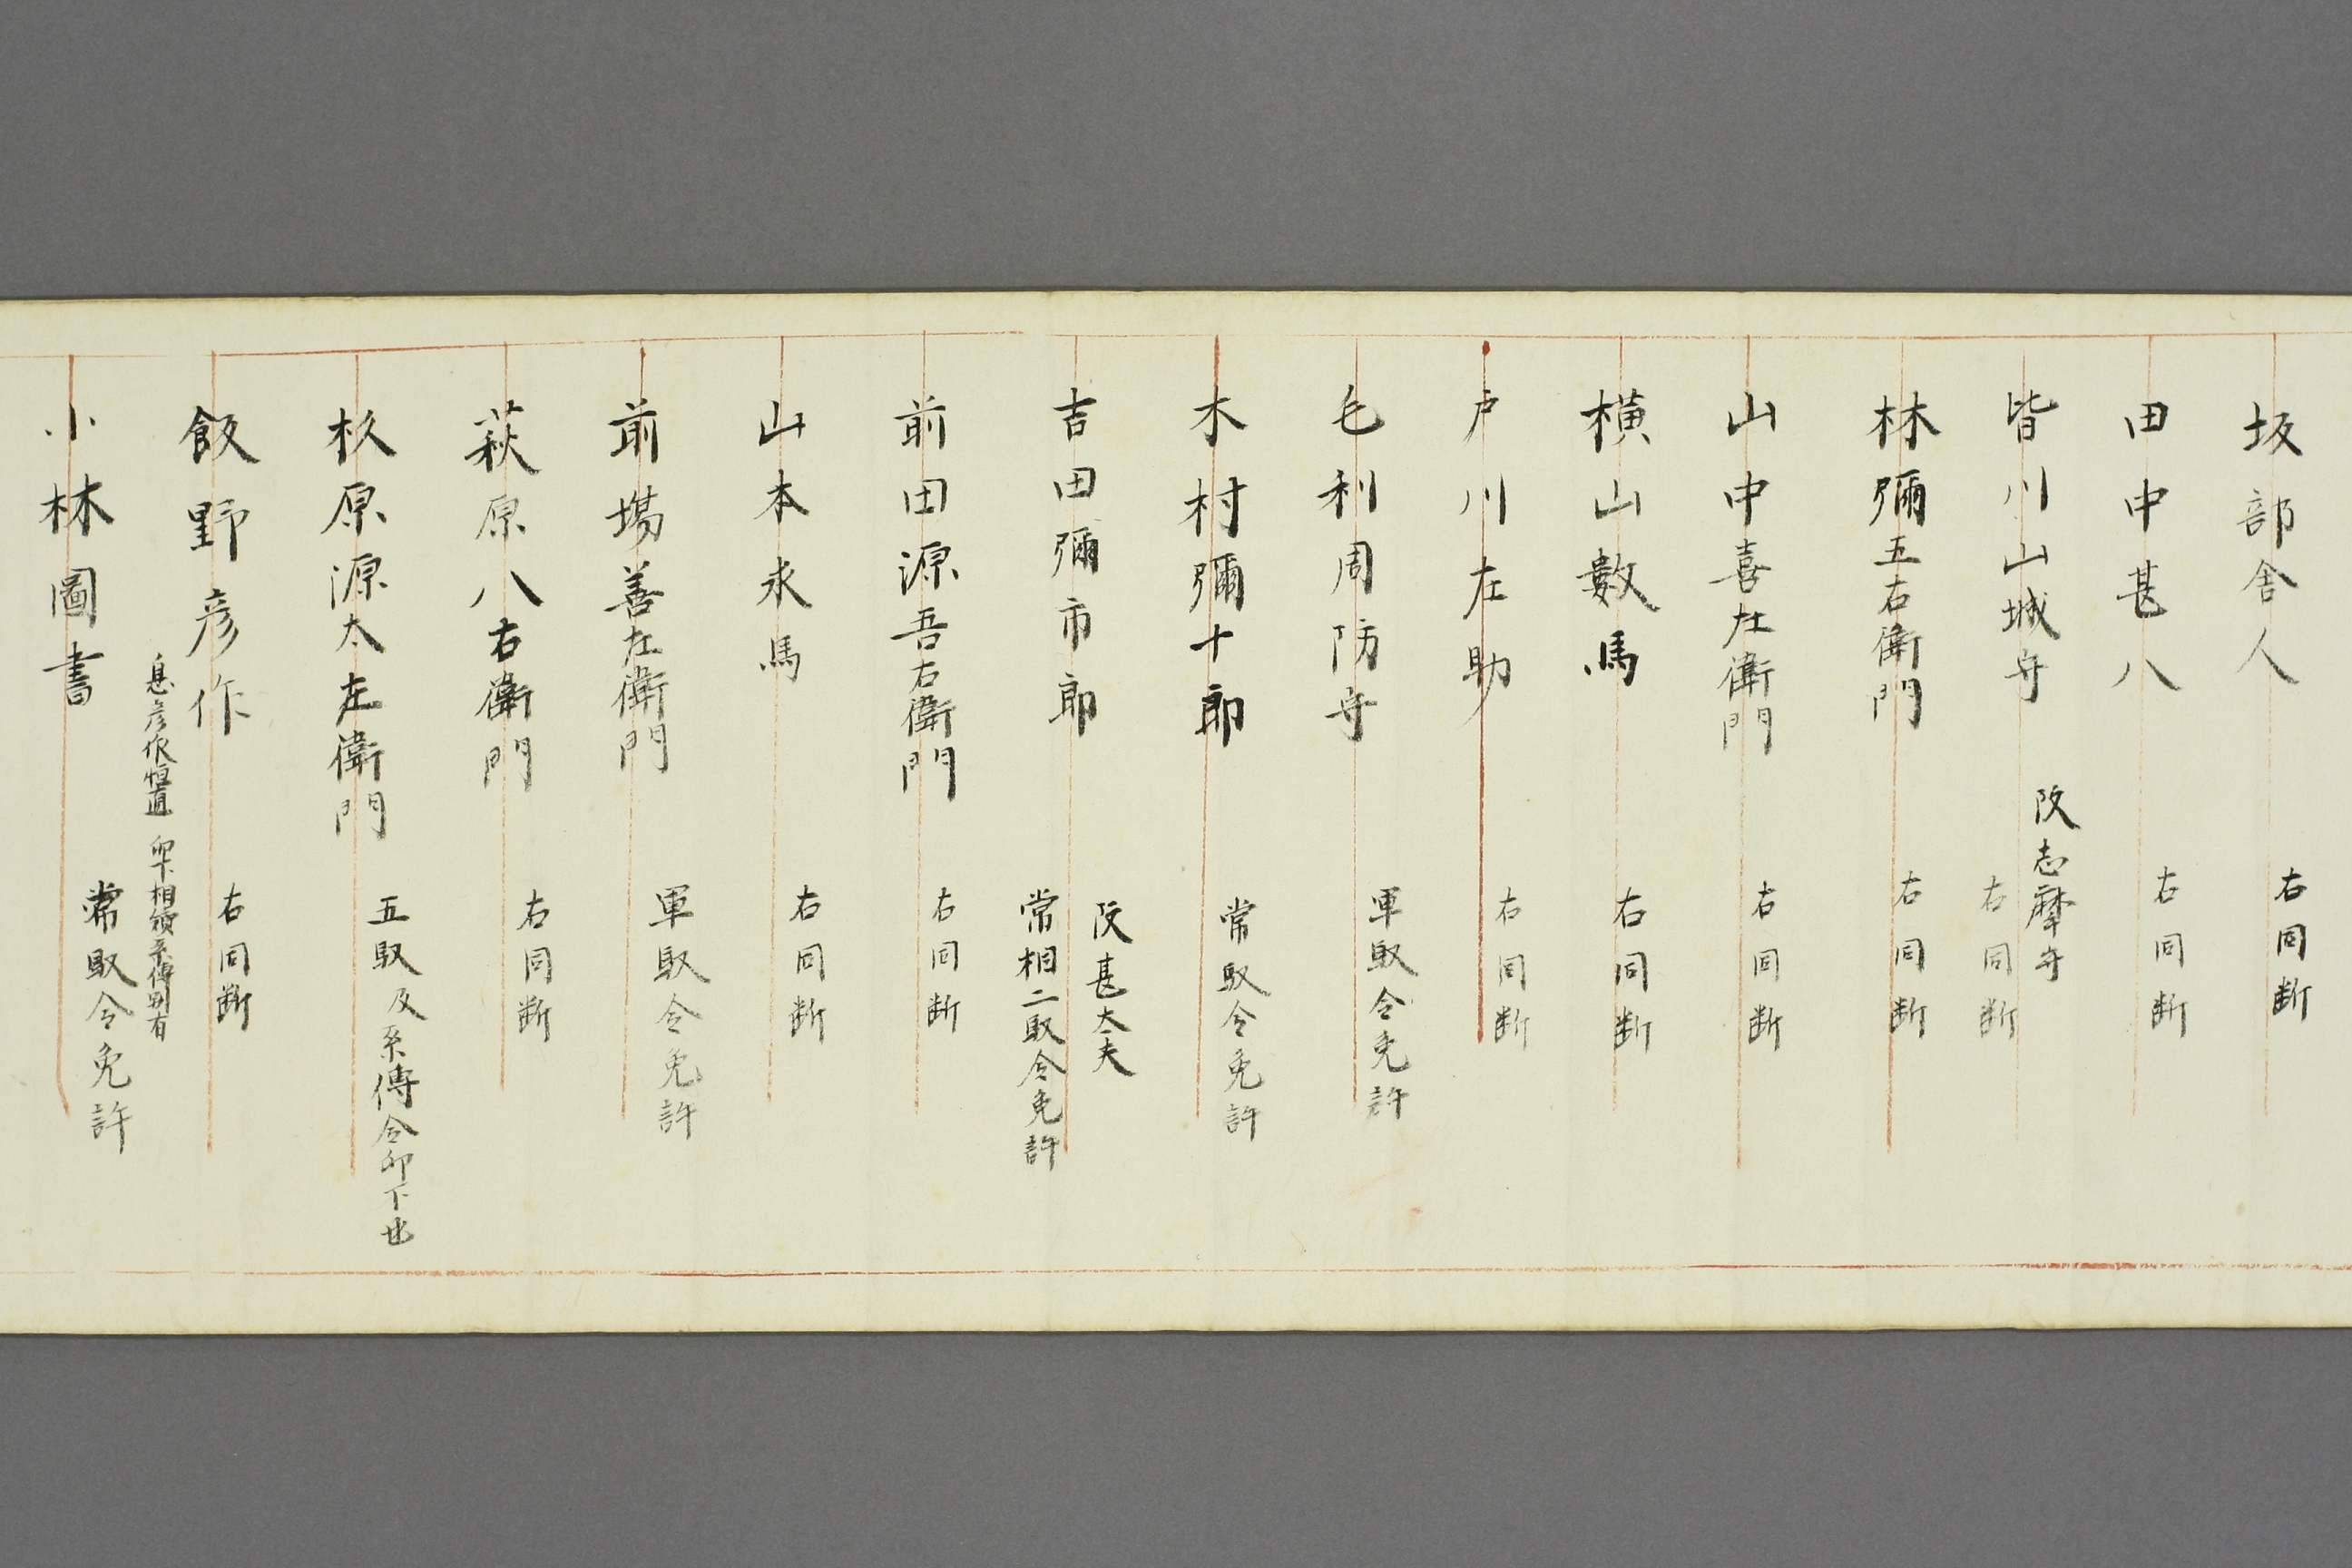 坂部舎人
右同断
田中甚八
右同断
皆川山城守
改志摩守
右同断
林彌五右衛門
右同断
山中喜左衛門
右同断
横山數馬
右同断
戸川左助
右同断
毛利周防守
軍馭令免許
木村彌十郎
常馭令免許
吉田彌市郎
改甚太夫
常相二馭令免許
前田源吾右衛門
右同断
山本求馬
右同断
前場善左衛門
軍馭令免許
萩原八右衛門
右同断
杦原源太左衛門
五馭及系傳令印下也
飯野彦作
右同断
息彦作恒直 印下相續系傳別有
小林圖書
常馭令免許